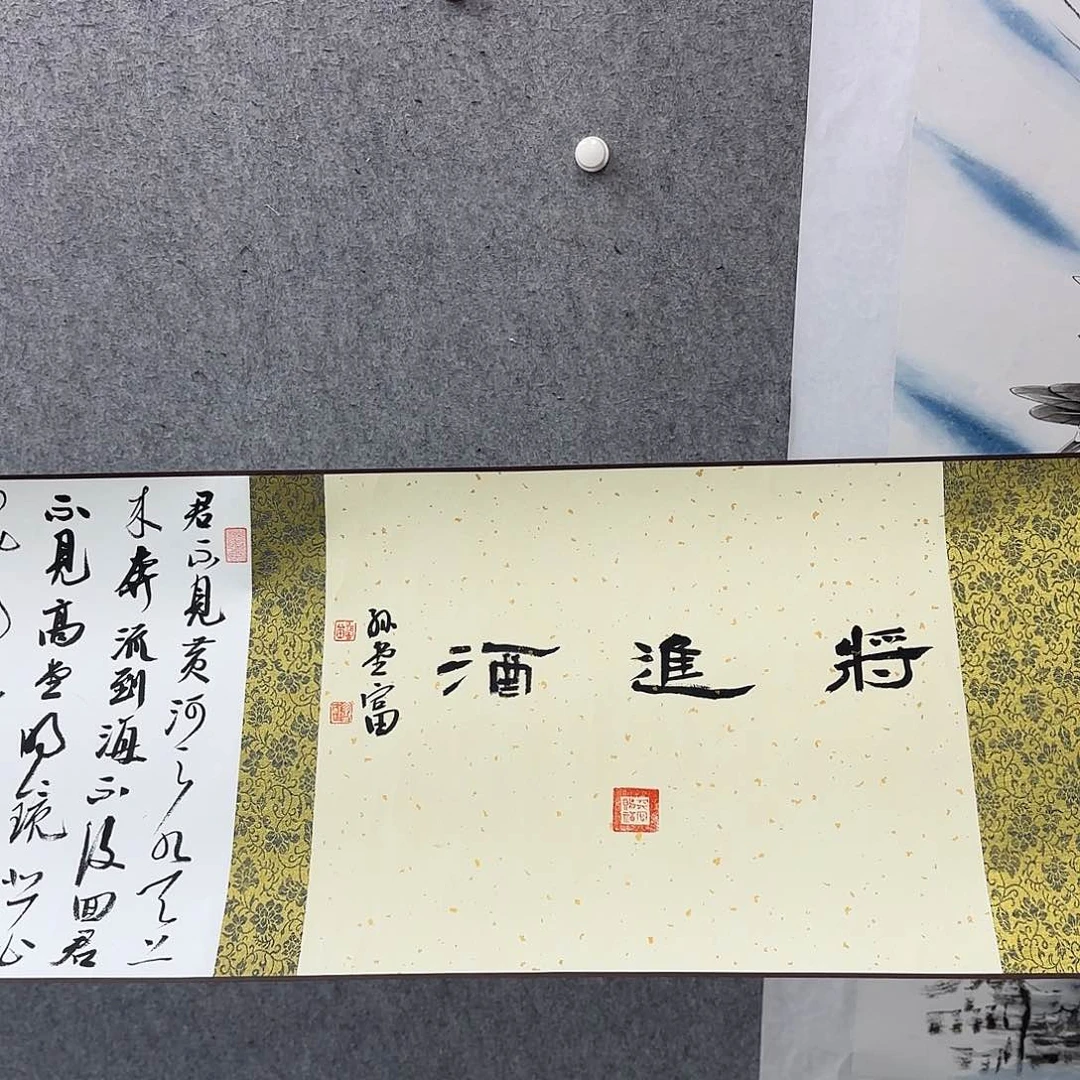 將進酒
孙堂富
君不見黄河之水天上
来奔流到海不復回君
不見高堂明鏡悲